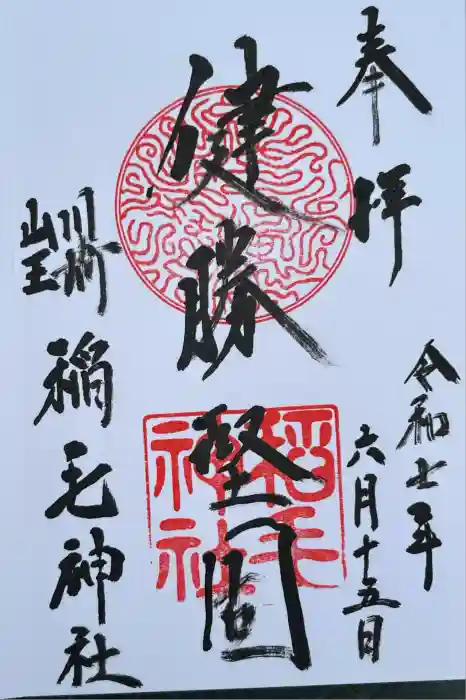 奉拝
令和七年
六月十五日
健勝堅固
稲毛神社
山王
稲毛神社